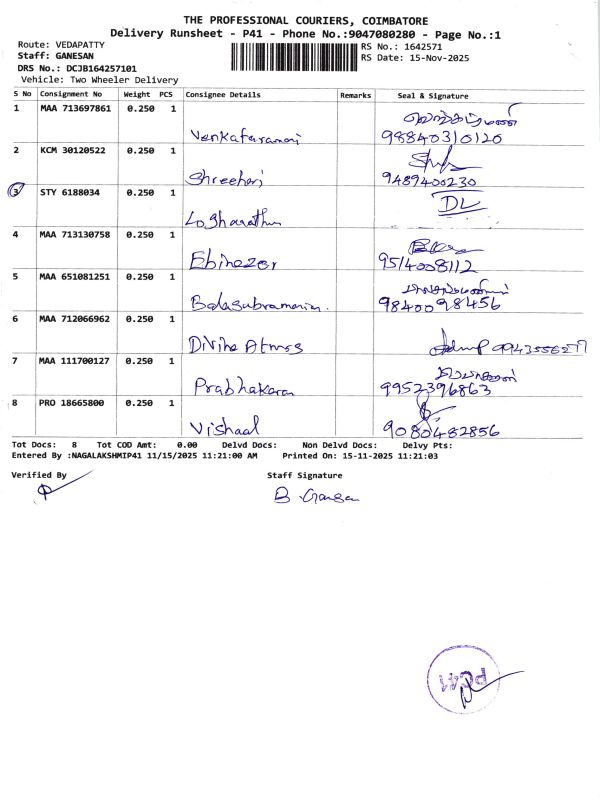 THE PROFESSIONAL COURIERS, COIMBATORE
Delivery Runsheet - P41 - Phone No.:9047080280 - Page No.:1
Route: VEDAPATTY RS No.: 1642571
Staff: GANESAN RS Date: 15-Nov-2025
DRS No.: DCJB164257101
Vehicle: Two Wheeler Delivery
S No Consignment No Weight PCS Consignee Details Remarks Seal & Signature
1 MAA 713697861 0.250 1
Venkataramani 98840310120
2 KCM 30120522 0.250 1
Shreehari 9489400230
3 STY 6188034 0.250 1 DL
Lo Bharathi
4 MAA 713130758 0.250 1
Ebinezer 9514008112
5 MAA 651081251 0.250 1
Balasubramanian. 9840098456
6 MAA 712066962 0.250 1
Divine Atmos 9943556277
7 MAA 111700127 0.250 1
Prabhakaran 9952396863
8 PRO 18665800 0.250 1
Vishaal 9080482856
Tot Docs: 8 Tot COD Amt: 0.00 Delvd Docs: Non Delvd Docs: Delvy Pts:
Entered By :NAGALAKSHMIP41 11/15/2025 11:21:00 AM Printed On: 15-11-2025 11:21:03
Verified By Staff Signature
B. Ganesan